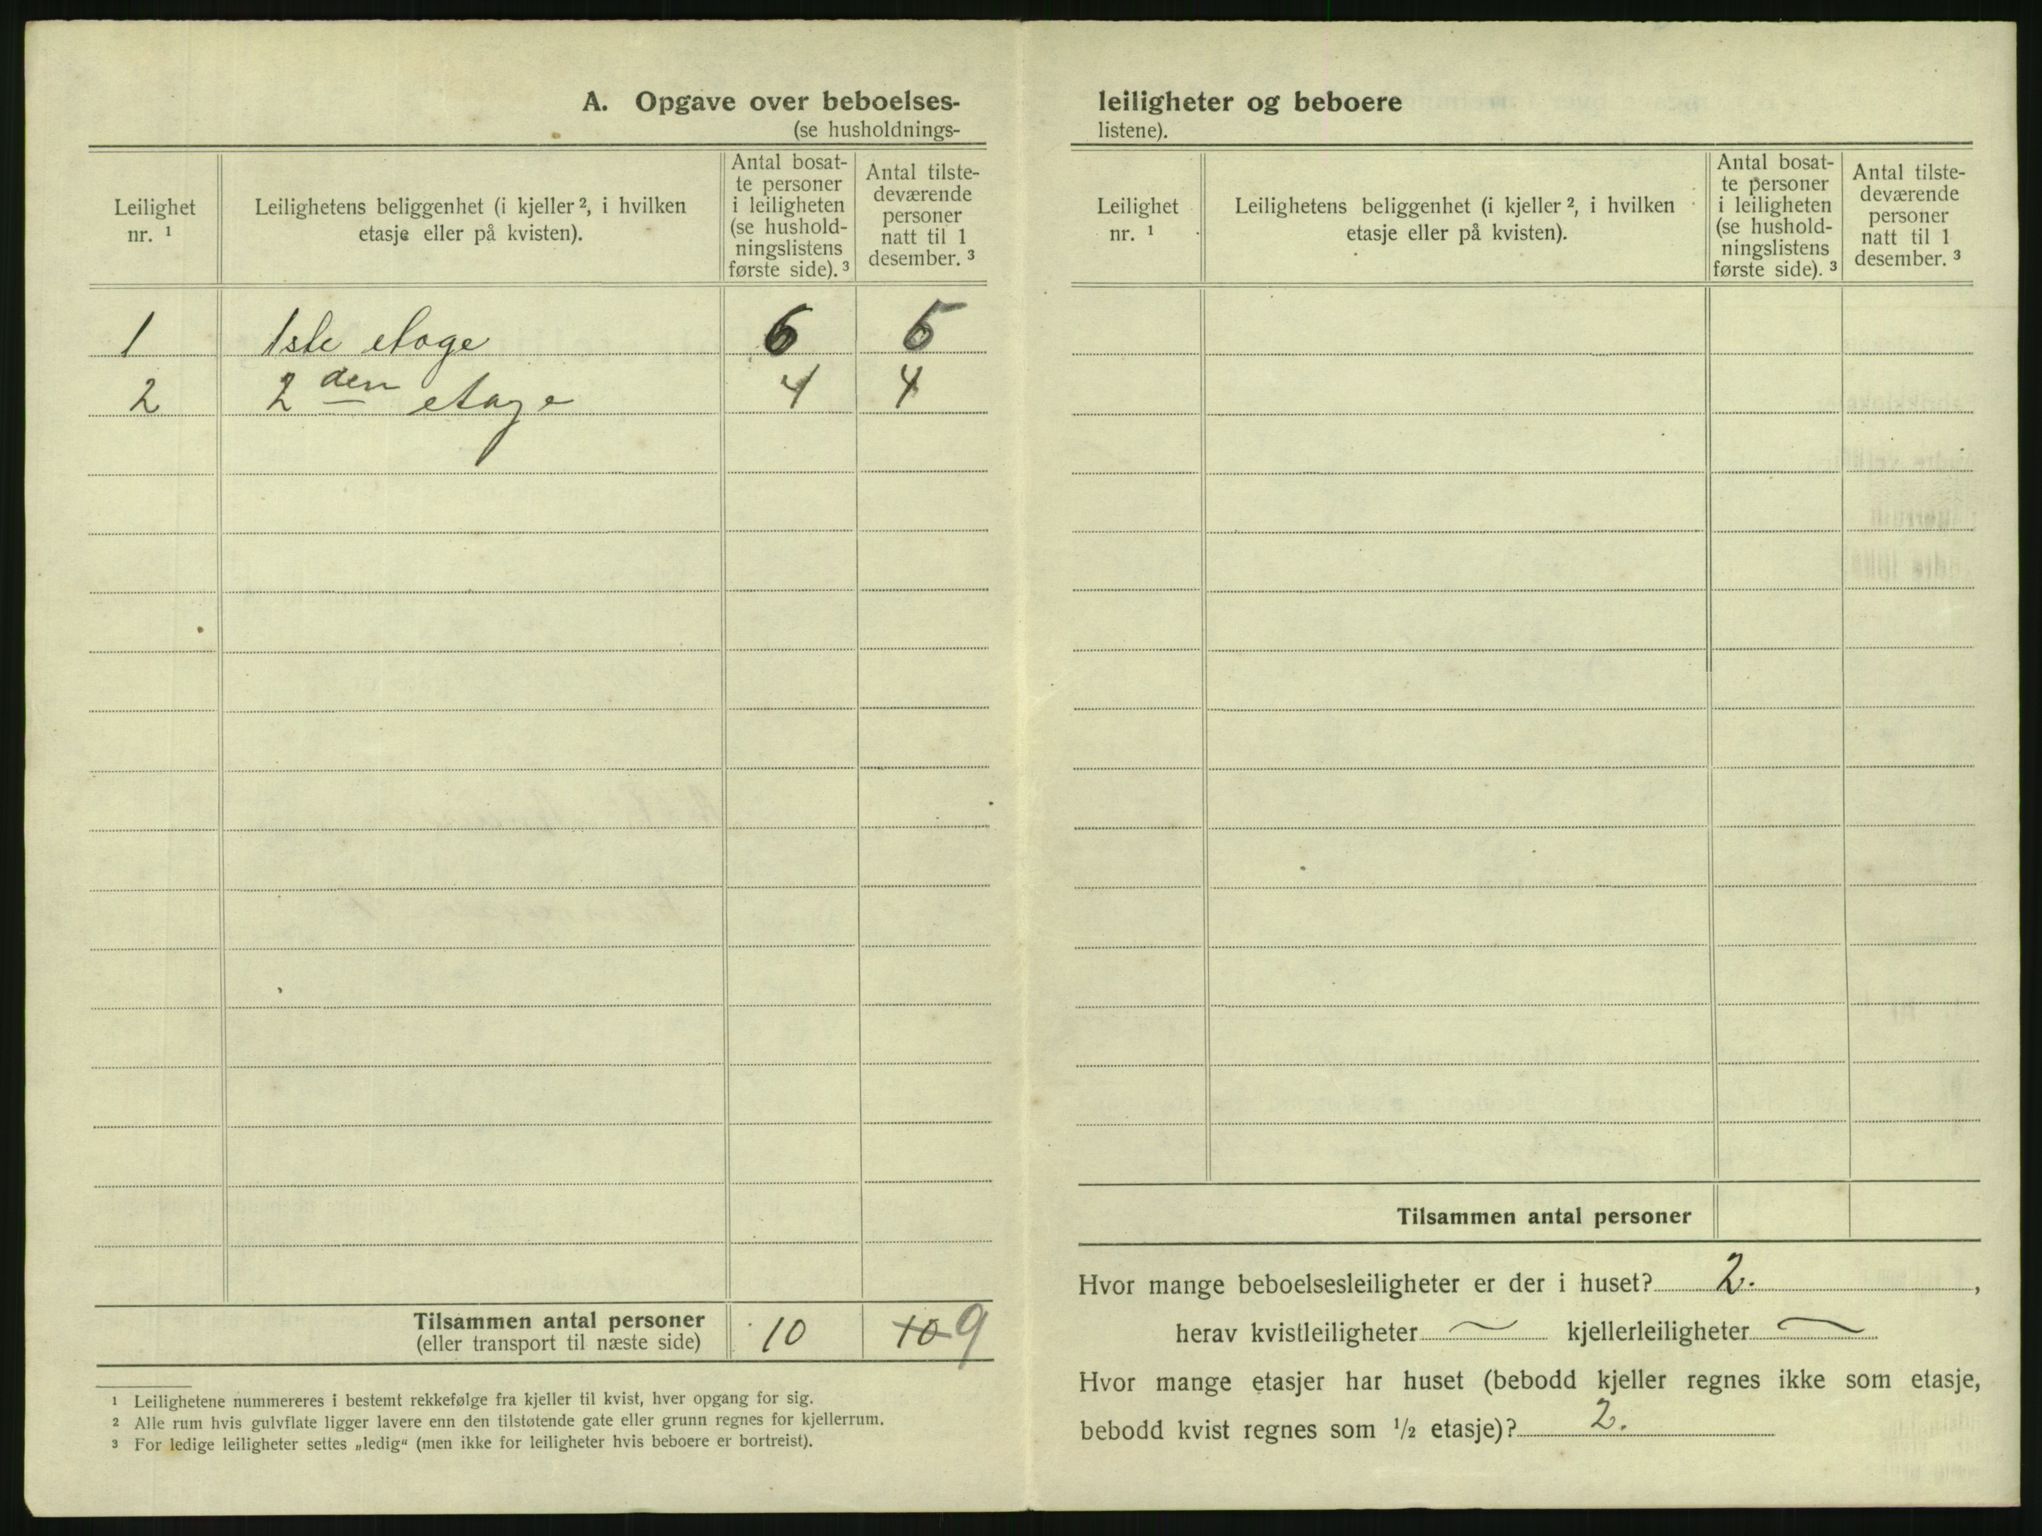 A. Opgave over beboelses-
(se husholdnings-
Leilighet nr. ¹
Leilighetens beliggenhet (i kjeller ², i hvilken etasje eller på kvisten).
Antal bosat-
te personer
i leiligheten
(se hushold-
ningslistens
første side). ³
Antal tilste-
deværende
personer
natt til 1
desember. ³
1 1ste etage 6 5
2 2den etage 4 4
Tilsammen antal personer 10 10 9
(eller transport til næste side)
¹ Leilighetene nummereres i bestemt rekkefølge fra kjeller til kvist, hver opgang for sig.
² Alle rum hvis gulvflate ligger lavere enn den tilstøtende gate eller grunn regnes for kjellerrum.
³ For ledige leiligheter settes „ledig“ (men ikke for leiligheter hvis beboere er bortreist).
leiligheter og beboere
listene).
Leilighet nr. ¹
Leilighetens beliggenhet (i kjeller ², i hvilken etasje eller på kvisten).
Antal bosat-
te personer
i leiligheten
(se hushold-
ningslistens
første side). ³
Antal tilste-
deværende
personer
natt til 1
desember. ³
Tilsammen antal personer
Hvor mange beboelsesleiligheter er der i huset? 2. ,
herav kvistleiligheter — kjellerleiligheter —
Hvor mange etasjer har huset (bebodd kjeller regnes ikke som etasje,
bebodd kvist regnes som ½ etasje)? 2.